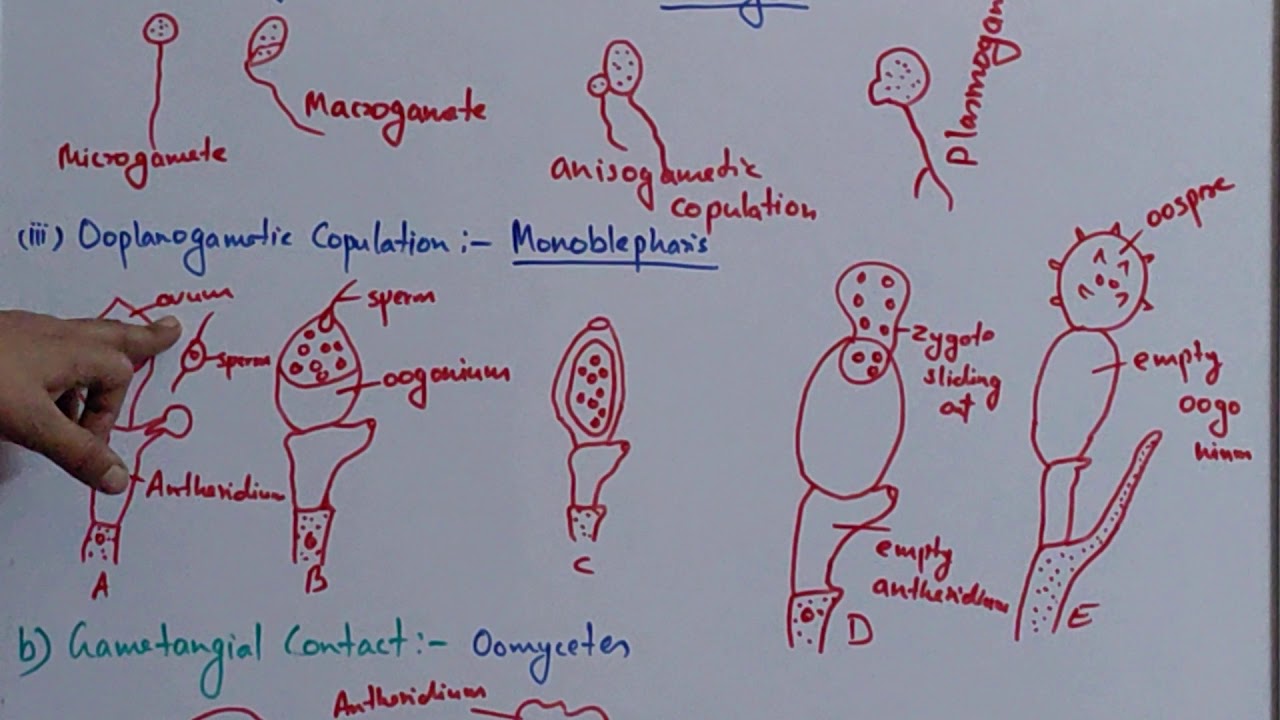 Microgamete
Macrogamete
anisogametic
copulation
Plasmogam
(iii) Ooplanogametic Copulation :- Monoblepharis
ovum
sperm
sperm
oogonium
Antheridium
zygote
sliding
out
oospre
empty
oogo
nium
empty
antheridium
A
B
C
D
E
b) Gametangial Contact :- Oomycetes
Antheridium